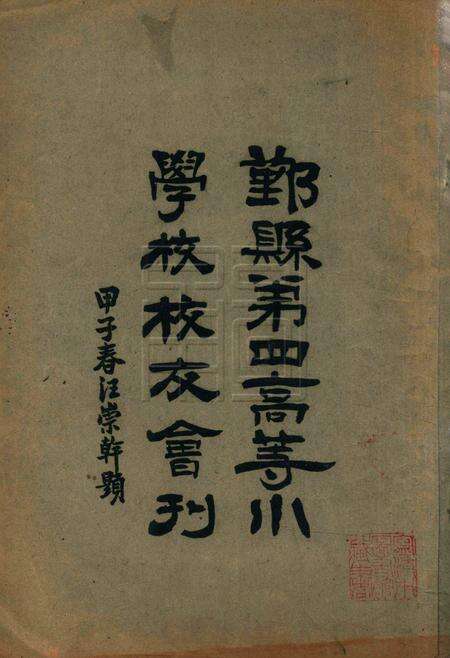 鄞縣第四高等小
學校校友會刊
甲子春汪崇幹題